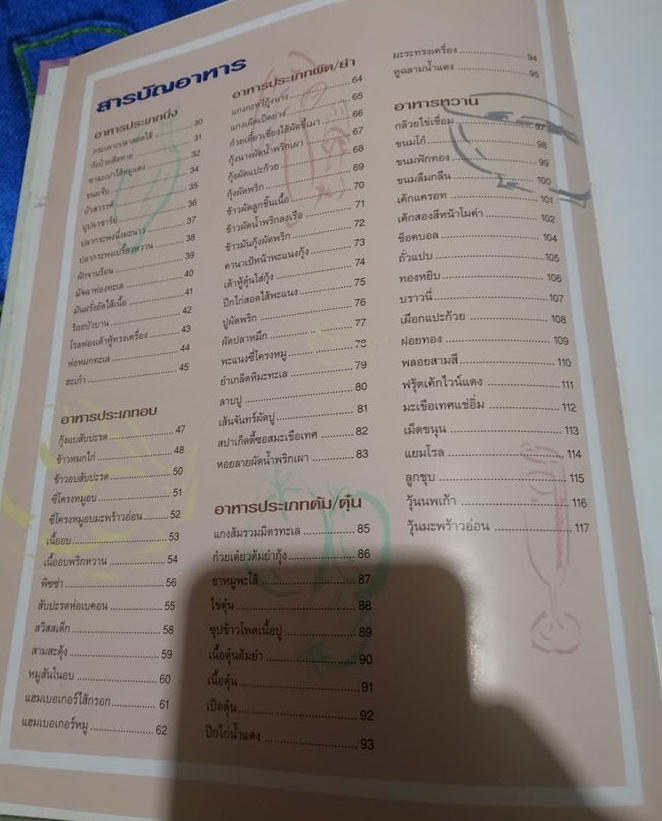 สารบัญอาหาร
อาหารประเภทนึ่ง
กระเพาะปลาสอดไส้ 30
31
ซาละเปาไส้หมูแดง 32
ขนมจีบ 34
บัวสวรรค์ 35
36
ปลากะพงนึ่งมะนาว 37
ปลากะพงเปรี้ยวหวาน 38
ผักจานร้อน 39
40
มันฝรั่งยัดไส้เนื้อ 41
ร้อยบัวบาน 42
โรลฟองเต้าหู้ทรงเครื่อง 43
ห่อหมกทะเล 44
ฮะเก๋า 45
อาหารประเภทอบ
กุ้งอบสับปะรด 47
ข้าวหมกไก่ 48
ข้าวอบสับปะรด 50
ซี่โครงหมูอบ 51
ซี่โครงหมูอบมะพร้าวอ่อน 52
เนื้ออบ 53
เนื้ออบพริกหวาน 54
พิซซ่า 56
สับปะรดห่อเบคอน 55
สวิสสเต็ก 58
สามสะดุ้ง 59
หมูสันในอบ 60
แฮมเบอเกอร์ไส้กรอก 61
แฮมเบอเกอร์หมู 62
อาหารประเภทผัด/ยำ
แกงกะหรี่กุ้งนาง 64
แกงเผ็ดเป็ดย่าง 65
ก๋วยเตี๋ยวเซี่ยงไฮ้ผัดขี้เมา 66
กุ้งนางผัดน้ำพริกเผา 67
กุ้งผัดแปะก๊วย 68
กุ้งผัดพริก 69
ข้าวผัดลูกชิ้นเนื้อ 70
ข้าวผัดน้ำพริกลงเรือ 71
ข้าวมันกุ้งผัดพริก 72
คานาเป้หน้าพะแนงกุ้ง 73
เต้าหู้ตุ๋นใส่กุ้ง 74
ปีกไก่สอดไส้พะแนง 75
ปูผัดพริก 76
ผัดปลาหมึก 77
พะแนงซี่โครงหมู 78
ยำเกล็ดหิมะทะเล 79
ลาบปู 80
เส้นจันทร์ผัดปู 81
สปาเก็ตตี้ซอสมะเขือเทศ 82
หอยลายผัดน้ำพริกเผา 83
อาหารประเภทต้ม/ตุ๋น
แกงส้มรวมมิตรทะเล 85
ก๋วยเตี๋ยวต้มยำกุ้ง 86
ขาหมูพะโล้ 87
ไข่ตุ๋น 88
ซุปข้าวโพดเนื้อปู 89
เนื้อตุ๋นต้มยำ 90
เนื้อตุ๋น 91
เป็ดตุ๋น 92
ปีกไก่น้ำแดง 93
มะระทรงเครื่อง 94
หูฉลามน้ำแดง 95
อาหารหวาน
กล้วยไข่เชื่อม 97
ขนมโก๋ 98
ขนมฟักทอง 99
ขนมลืมกลืน 100
เค้กแครอท 101
เค้กสองสีหน้าโมค่า 102
ช็อคบอล 104
ถั่วแปบ 105
ทองหยิบ 106
บราวนี่ 107
เผือกแปะก๊วย 108
ฝอยทอง 109
พลอยสามสี 110
ฟรุ้ตเค้กไวน์แดง 111
มะเขือเทศแช่อิ่ม 112
เม็ดขนุน 113
แยมโรล 114
ลูกชุบ 115
วุ้นนพเก้า 116
วุ้นมะพร้าวอ่อน 117